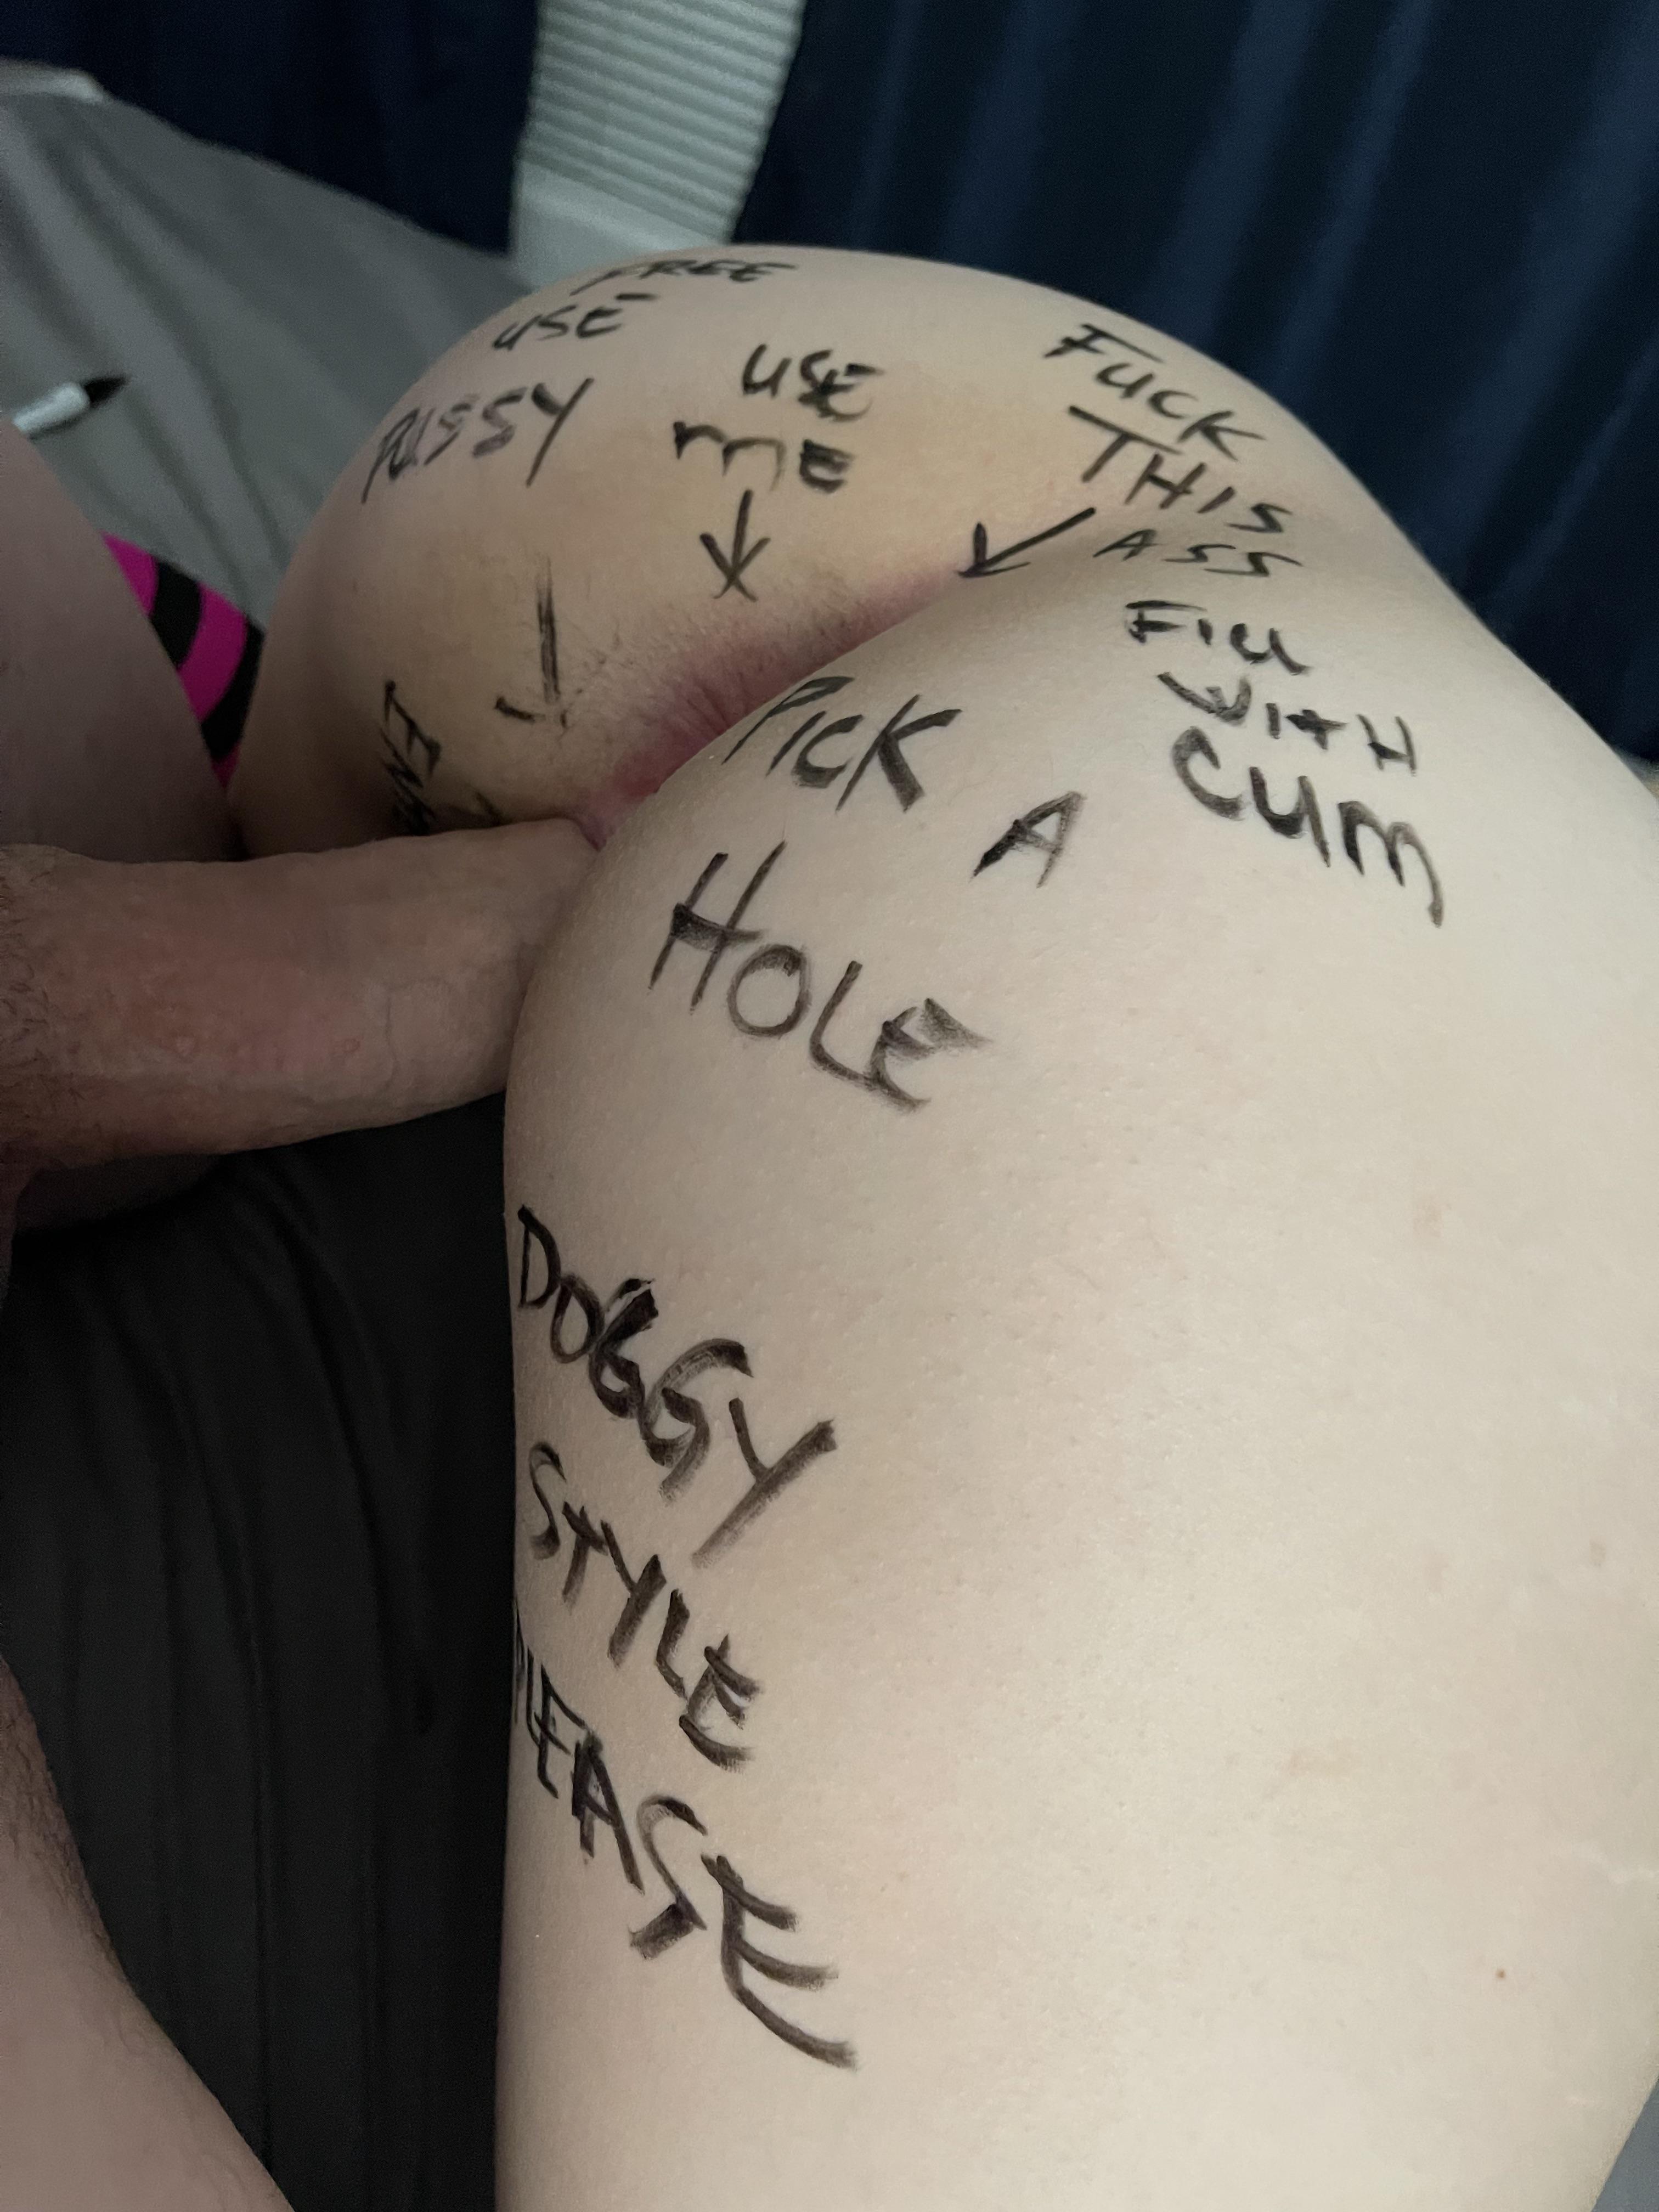 FREE
USE
PUSSY
USE
ME
FUCK
THIS
ASS
FILL
WITH
CUM
PICK
A
HOLE
DOGGY
STYLE
PLEASE